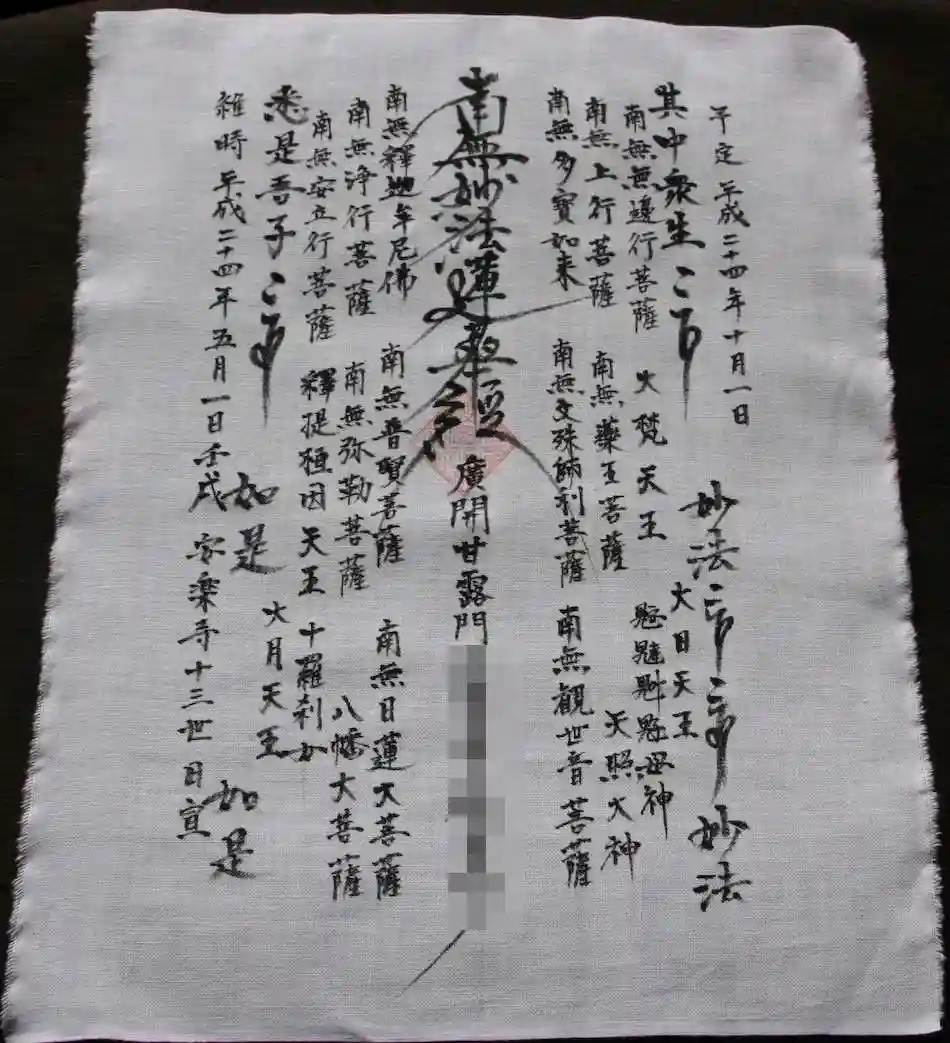 予定 平成二十四年十月一日
妙法 妙法
其中衆生
大日天王
南無無邊行菩薩 大梵天王 母神
南無上行菩薩 南無藥王菩薩 天照大神
南無多寶如来 南無文殊師利菩薩 南無観世音菩薩
南無妙法蓮華經 廣開甘露門
南無釋迦牟尼佛 南無普賢菩薩 南無日蓮大菩薩
南無浄行菩薩 南無弥勒菩薩 八幡大菩薩
南無安立行菩薩 釋提桓因天王 十羅刹女
悉是吾子
大月天王
如是 如是
維時 平成二十四年五月一日壬戌 安楽寺十三世 日宣